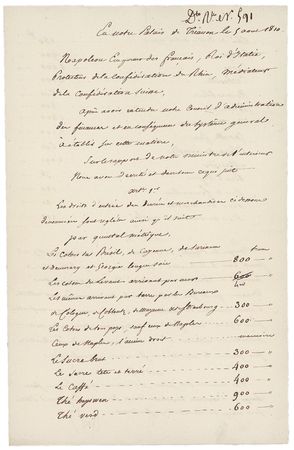 Dn. N. er. 591
En notre Palais de Trianon le 5 aout 1810.
Napoleon Empereur des français, Roi d'Italie,
Protecteur de la confédération du Rhin, Médiateur
de la confédération suisse,
Après avoir entendu notre Conseil d'administration
des finances et en conséquence du système général
établi sur cette matière,
Sur le rapport de notre ministre de l'intérieur
Nous avons décrété et décrétons ce qui suit
art. 1er
Les droits d'entrée des denrées et marchandises ci dessous
dénommées sont réglés ainsi qu'il suit:
par quintal métrique,
Les Cotons du Brésil, de Cayenne, de Surinam
et demerary et Georgie longue soie 800
Les cotons du Levant arrivant par mer 400
Les mêmes arrivant par terre par les Bureaux
de Cologne, de Coblentz, de Mayence et de Strasbourg 300
Les Cotons de tout pays, sauf ceux de Naples 600
Ceux de Naples, l'ancien droit
Le Sucre brut 300
Le Sucre tête et terré 400
Le Caffé 400
Thé hyswen 900
Thé verd 600